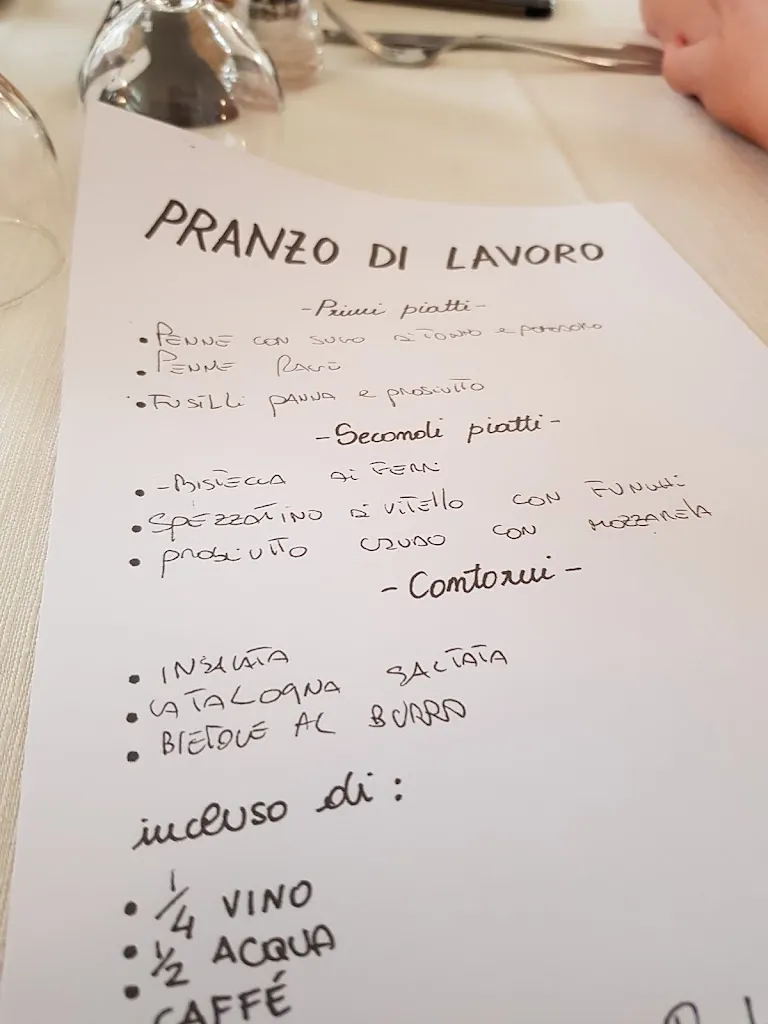 PRANZO DI LAVORO
-Primi piatti-
• PENNE CON SUGO DI TONNO e POMODORO
• PENNE RAGÙ
• FUSILLI PANNA e PROSCIUTTO
-Secondi piatti-
• -BISTECCA AI FERRI
• SPEZZATINO DI VITELLO CON FUNGHI
• PROSCIUTTO CRUDO CON MOZZARELA
-Contorni-
• INSALATA
• CATALOGNA SALTATA
• BIETOLE AL BURRO
incluso di:
• 1/4 VINO
• 1/2 ACQUA
• CAFFÉ